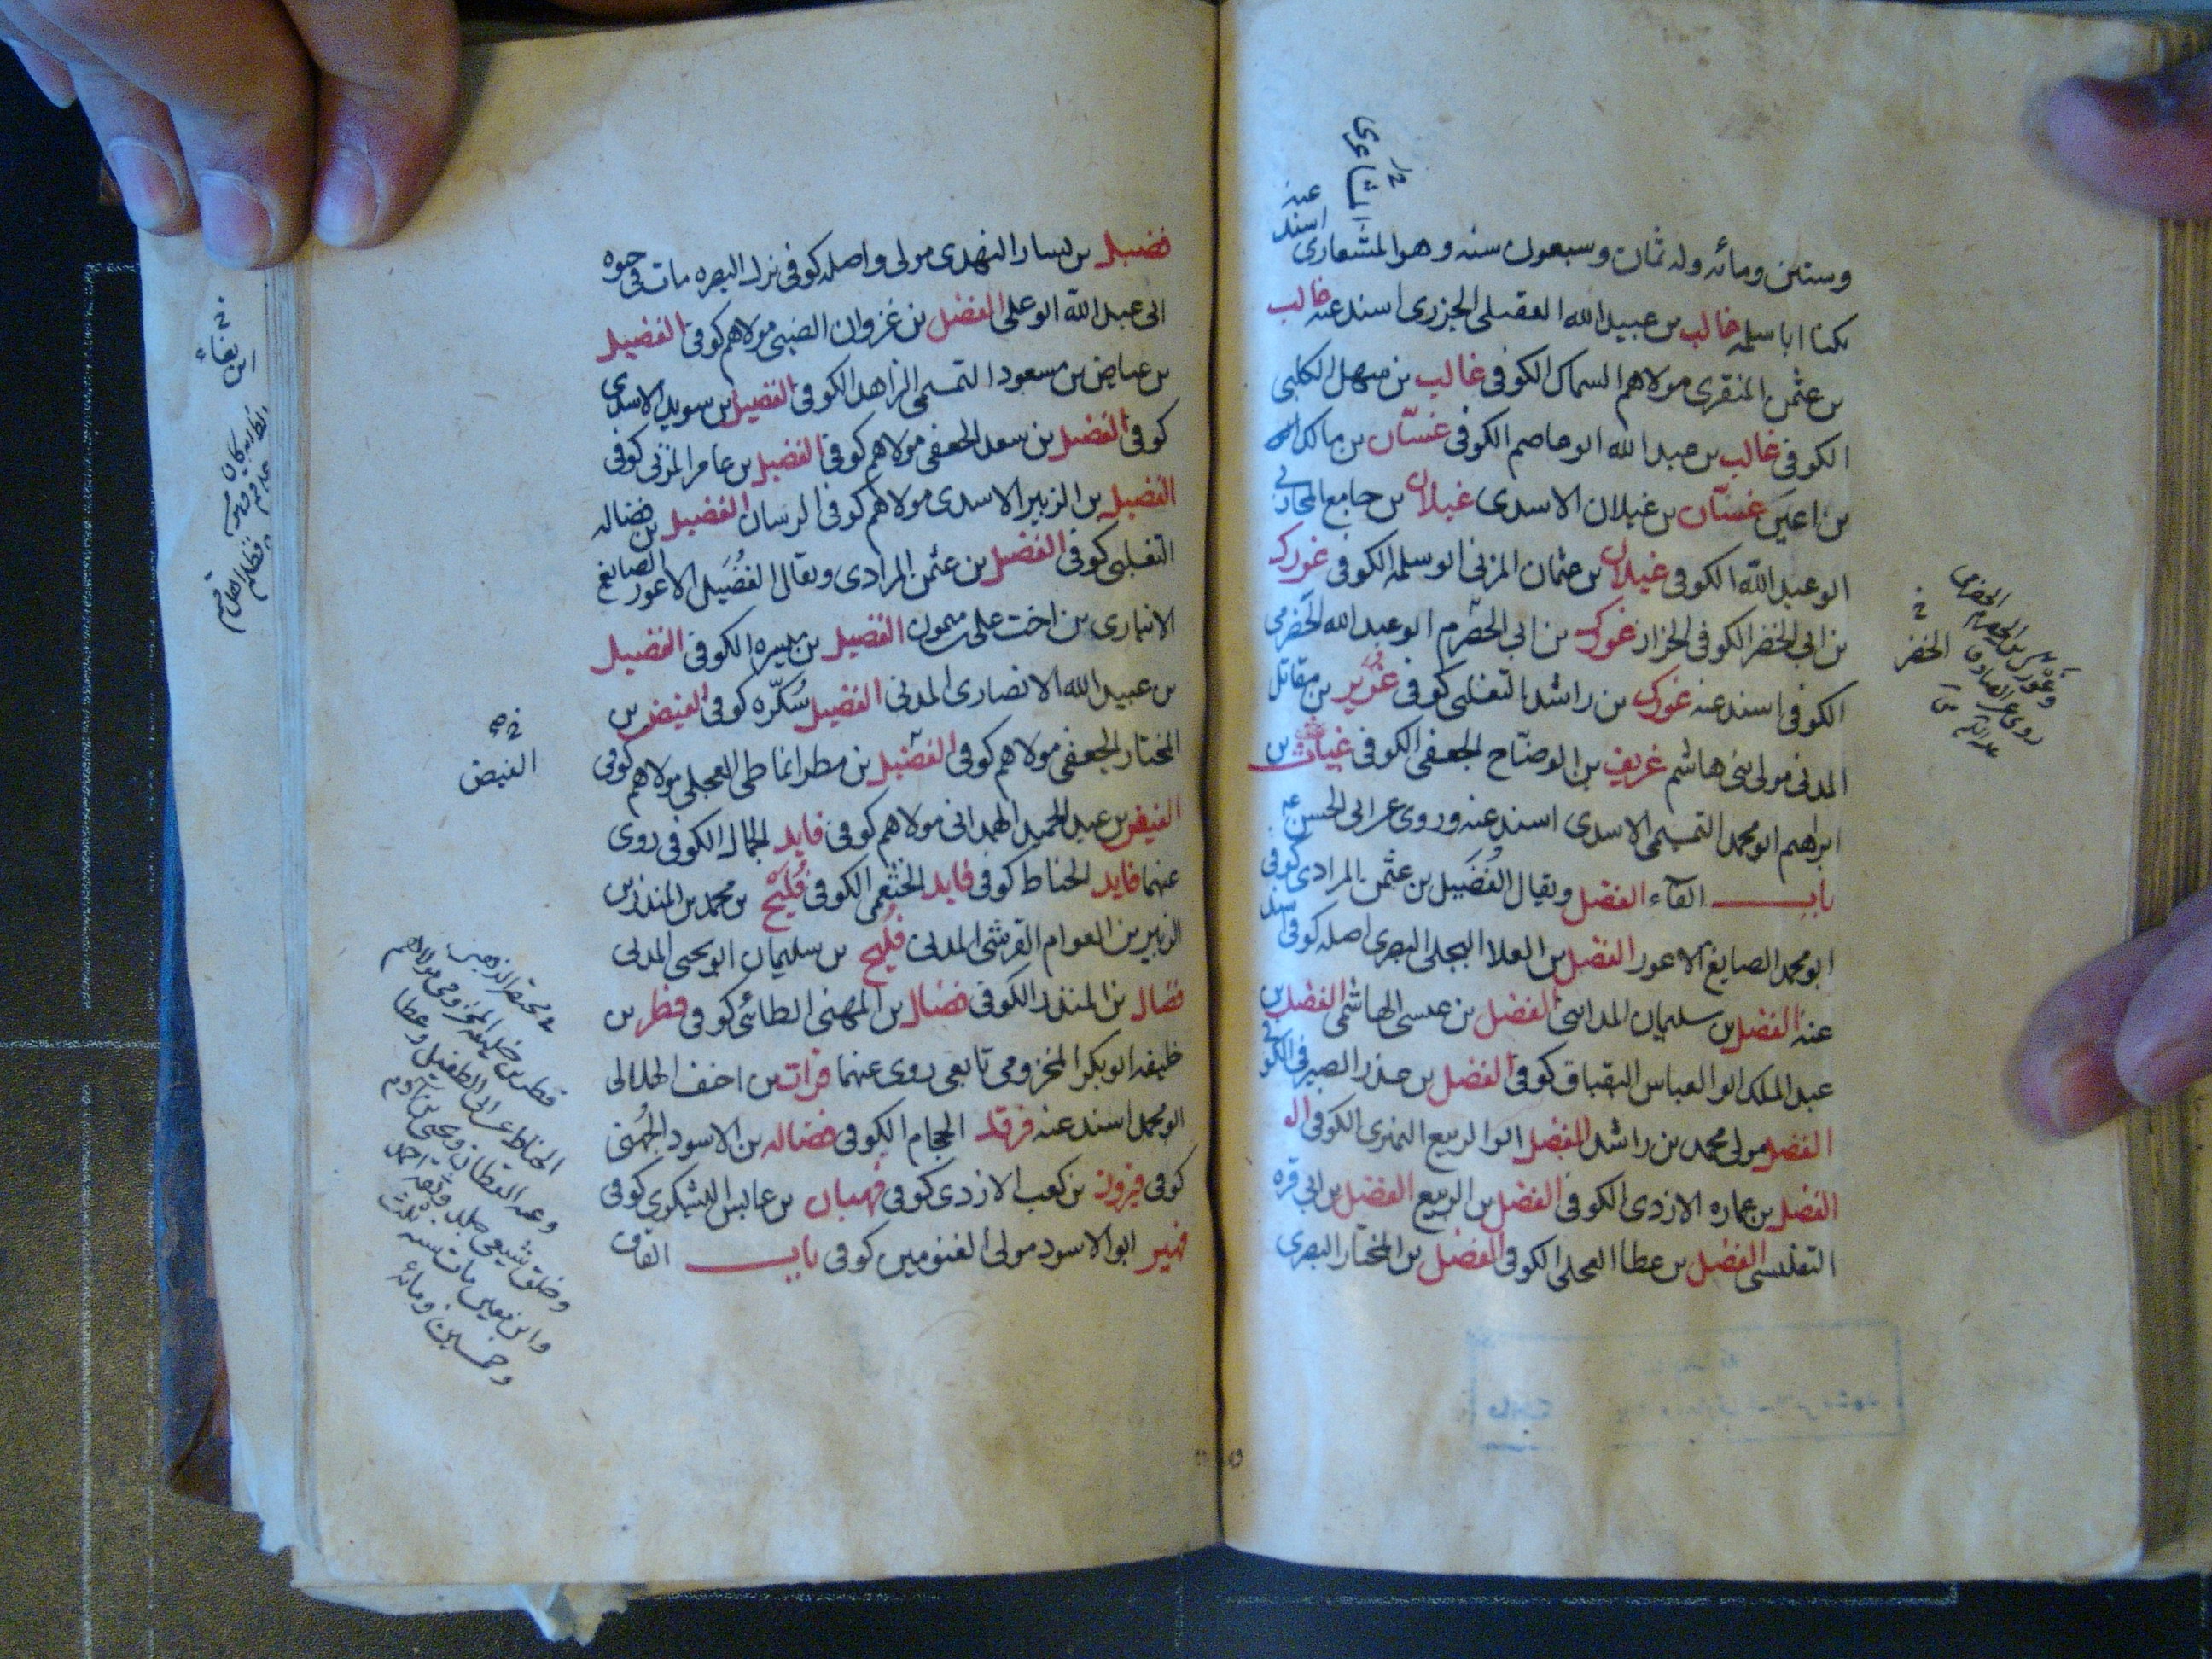 وستين ومائه وله ثمان وسبعون سنه وهو المشعارى اسند عنه
يكنا ابا سلمه غالب بن عبيد الله العقيلى الجزرى اسند عنه غالب
بن عثمن المنقرى مولاهم السماك الكوفى غالب بن منهل الكلبى
الكوفى غالب بن عبد الله ابو عاصم الكوفى غسّان بن مالك
بن اعين غسّان بن غيلان الاسدى غيلان بن جامع المحاربى
ابو عبد الله الكوفى غيلان بن عثمان المزنى ابو سلمه الكوفى غورك
بن ابى الخضر الكوفى الخزاز غورك بن ابى الحضرم ابو عبد الله الحضرمى
الكوفى اسند عنه غورك بن راشد التغلبى كوفى عزير بن مقاتل
المدنى مولى بنى هاشم غريف بن الوضاح الجعفى الكوفى غياث بن
ابرهيم ابو محمد التميمى الاسدى اسند عنه وروى عن ابى الحسن ع
باب الفاء الفضل ويقال الفُضَيل بن عثمن المرادى كوفى
ابو محمد الصايغ الاعور الفضل بن العلا البجلى البصرى اصله كوفى اسند
عنه الفضل بن سليمان المداينى الفضل بن عيسى الهاشمى الفضل بن
عبد الملك ابو العباس البقباق كوفى الفضل بن الصيرفى الكوفى
الفضل مولى محمد بن راشد الفضل ابو الربيع المنرى الكوفى
الفضل بن عماره الازدى الكوفى الفضل بن الربيع الفضل بن ابى قره
التفليسى الفضل بن عطا العجلى الكوفى الفضل بن المختار البصرى
الخضر
فضيل بن يسار النهدى مولى واصله كوفى نزل البصره مات فى حيوه
ابى عبد الله ابو على الفضل بن غزوان الضبى مولاهم كوفى الفضيل
بن عياض بن مسعود التميمى الزاهد الكوفى الفضيل بن سويد الاسدى
كوفى الفضل بن سعد الجعفى مولاهم كوفى الفضيل بن عامر المزنى كوفى
الفضيل بن الزبير الاسدى مولاهم كوفى الرسان الفضيل بن فضاله
التغلبى كوفى الفضل بن عثمن المرادى ويقال الفُضَيل الاعور الصايغ
الانبارى بن اخت على بن ميمون الفضيل بن ميسره الكوفى الفضيل
بن عبيد الله الانصارى المدنى الفضيل سُكّره كوفى الفيض بن
المختار الجعفى مولاهم كوفى الفضيل بن مطر انماطى العجلى مولاهم كوفى
الفيض بن عبد الحميد الهمدانى مولاهم كوفى فايد الجمال الكوفى روى
عنهما فايد الحناط كوفى فايد الخثعمى الكوفى فُليح بن محمد بن المنذر بن
الزبير بن العوام القرشى المدنى فُليح بن سليمان ابو يحيى المدنى
فضال بن المنذر الكوفى فضال بن المهنى الطائى كوفى فطر بن
خليفه ابو بكر المخزومى تابعى روى عنهما فرات بن احنف الهلالى
ابو محمد اسند عنه فرقد الحجام الكوفى فضاله بن الاسود الجُهنى
كوفى فيروز بن كعب الازدى كوفى فهبان بن عابس اليشكرى كوفى
فهير ابو الاسود مولى الغنوميين كوفى باب القاف
الفيض
فطر بن خليفه المخزومى مولاهم
الحناط عن ابى الطفيل وعطا
وعنه القطان ويحيى بن آدم
وخلق شيعى جلد وثقه احمد
وابن معين مات سنه ثلث
وخمسين ومائه